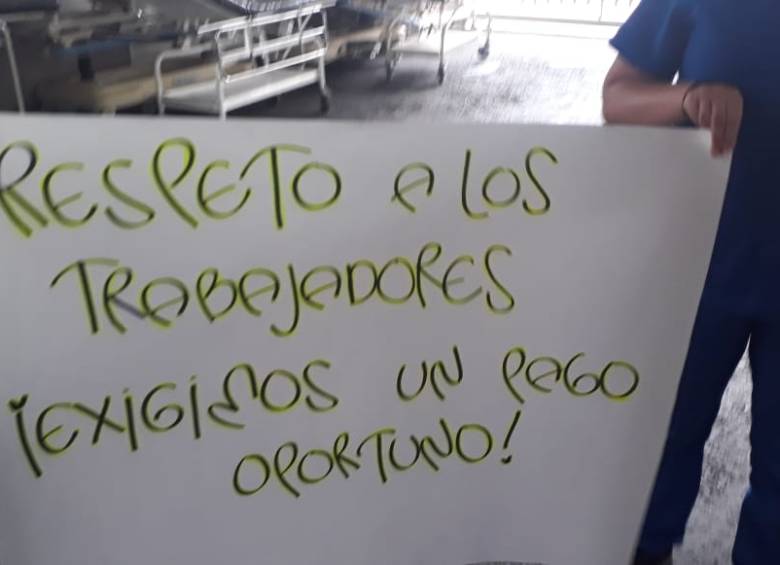 RESPETO A LOS
TRABAJADORES
¡EXIGIMOS UN PAGO
OPORTUNO!